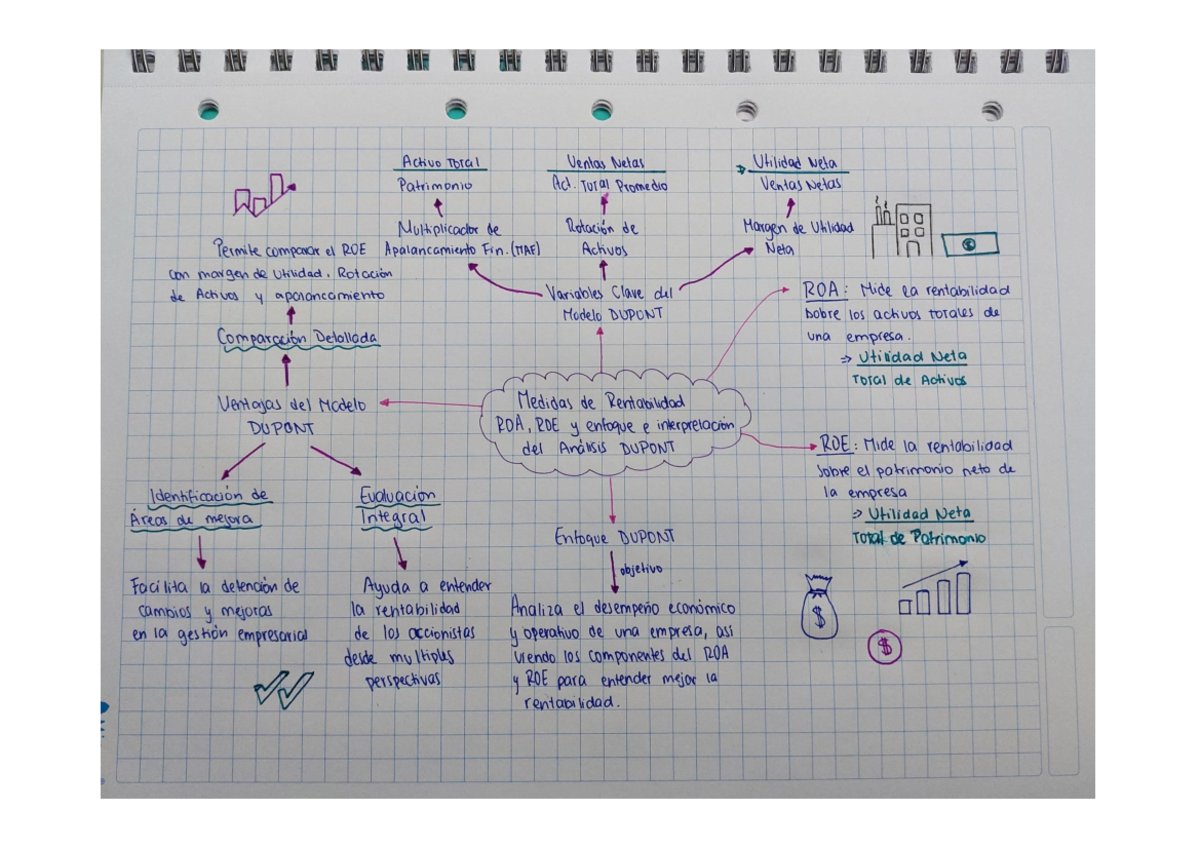 Activo Total
Patrimonio
Multiplicador de
Apalancamiento Fin. (MAF)
Ventas Netas
Act. Total Promedio
Rotación de
Activos
Utilidad Neta
Ventas Netas
Margen de Utilidad
Neta
Variables Clave del
Modelo DUPONT
Permite comparar el ROE
con margen de Utilidad, Rotación
de Activos y apalancamiento
Comparación Detallada
Ventajas del Modelo
DUPONT
Identificación de
Áreas de mejora
Facilita la detención de
cambios y mejoras
en la gestión empresarial
Evaluación
Integral
Ayuda a entender
la rentabilidad
de los accionistas
desde multiples
perspectivas
Medidas de Rentabilidad
ROA, ROE y enfoque e interpretación
del Análisis DUPONT
Enfoque DUPONT
objetivo
Analiza el desempeño económico
y operativo de una empresa, asi
viendo los componentes del ROA
y ROE para entender mejor la
rentabilidad.
ROA: Mide la rentabilidad
sobre los activos totales de
una empresa.
⇒ Utilidad Neta
Total de Activos
ROE: Mide la rentabilidad
sobre el patrimonio neto de
la empresa
⇒ Utilidad Neta
Total de Patrimonio
$
$